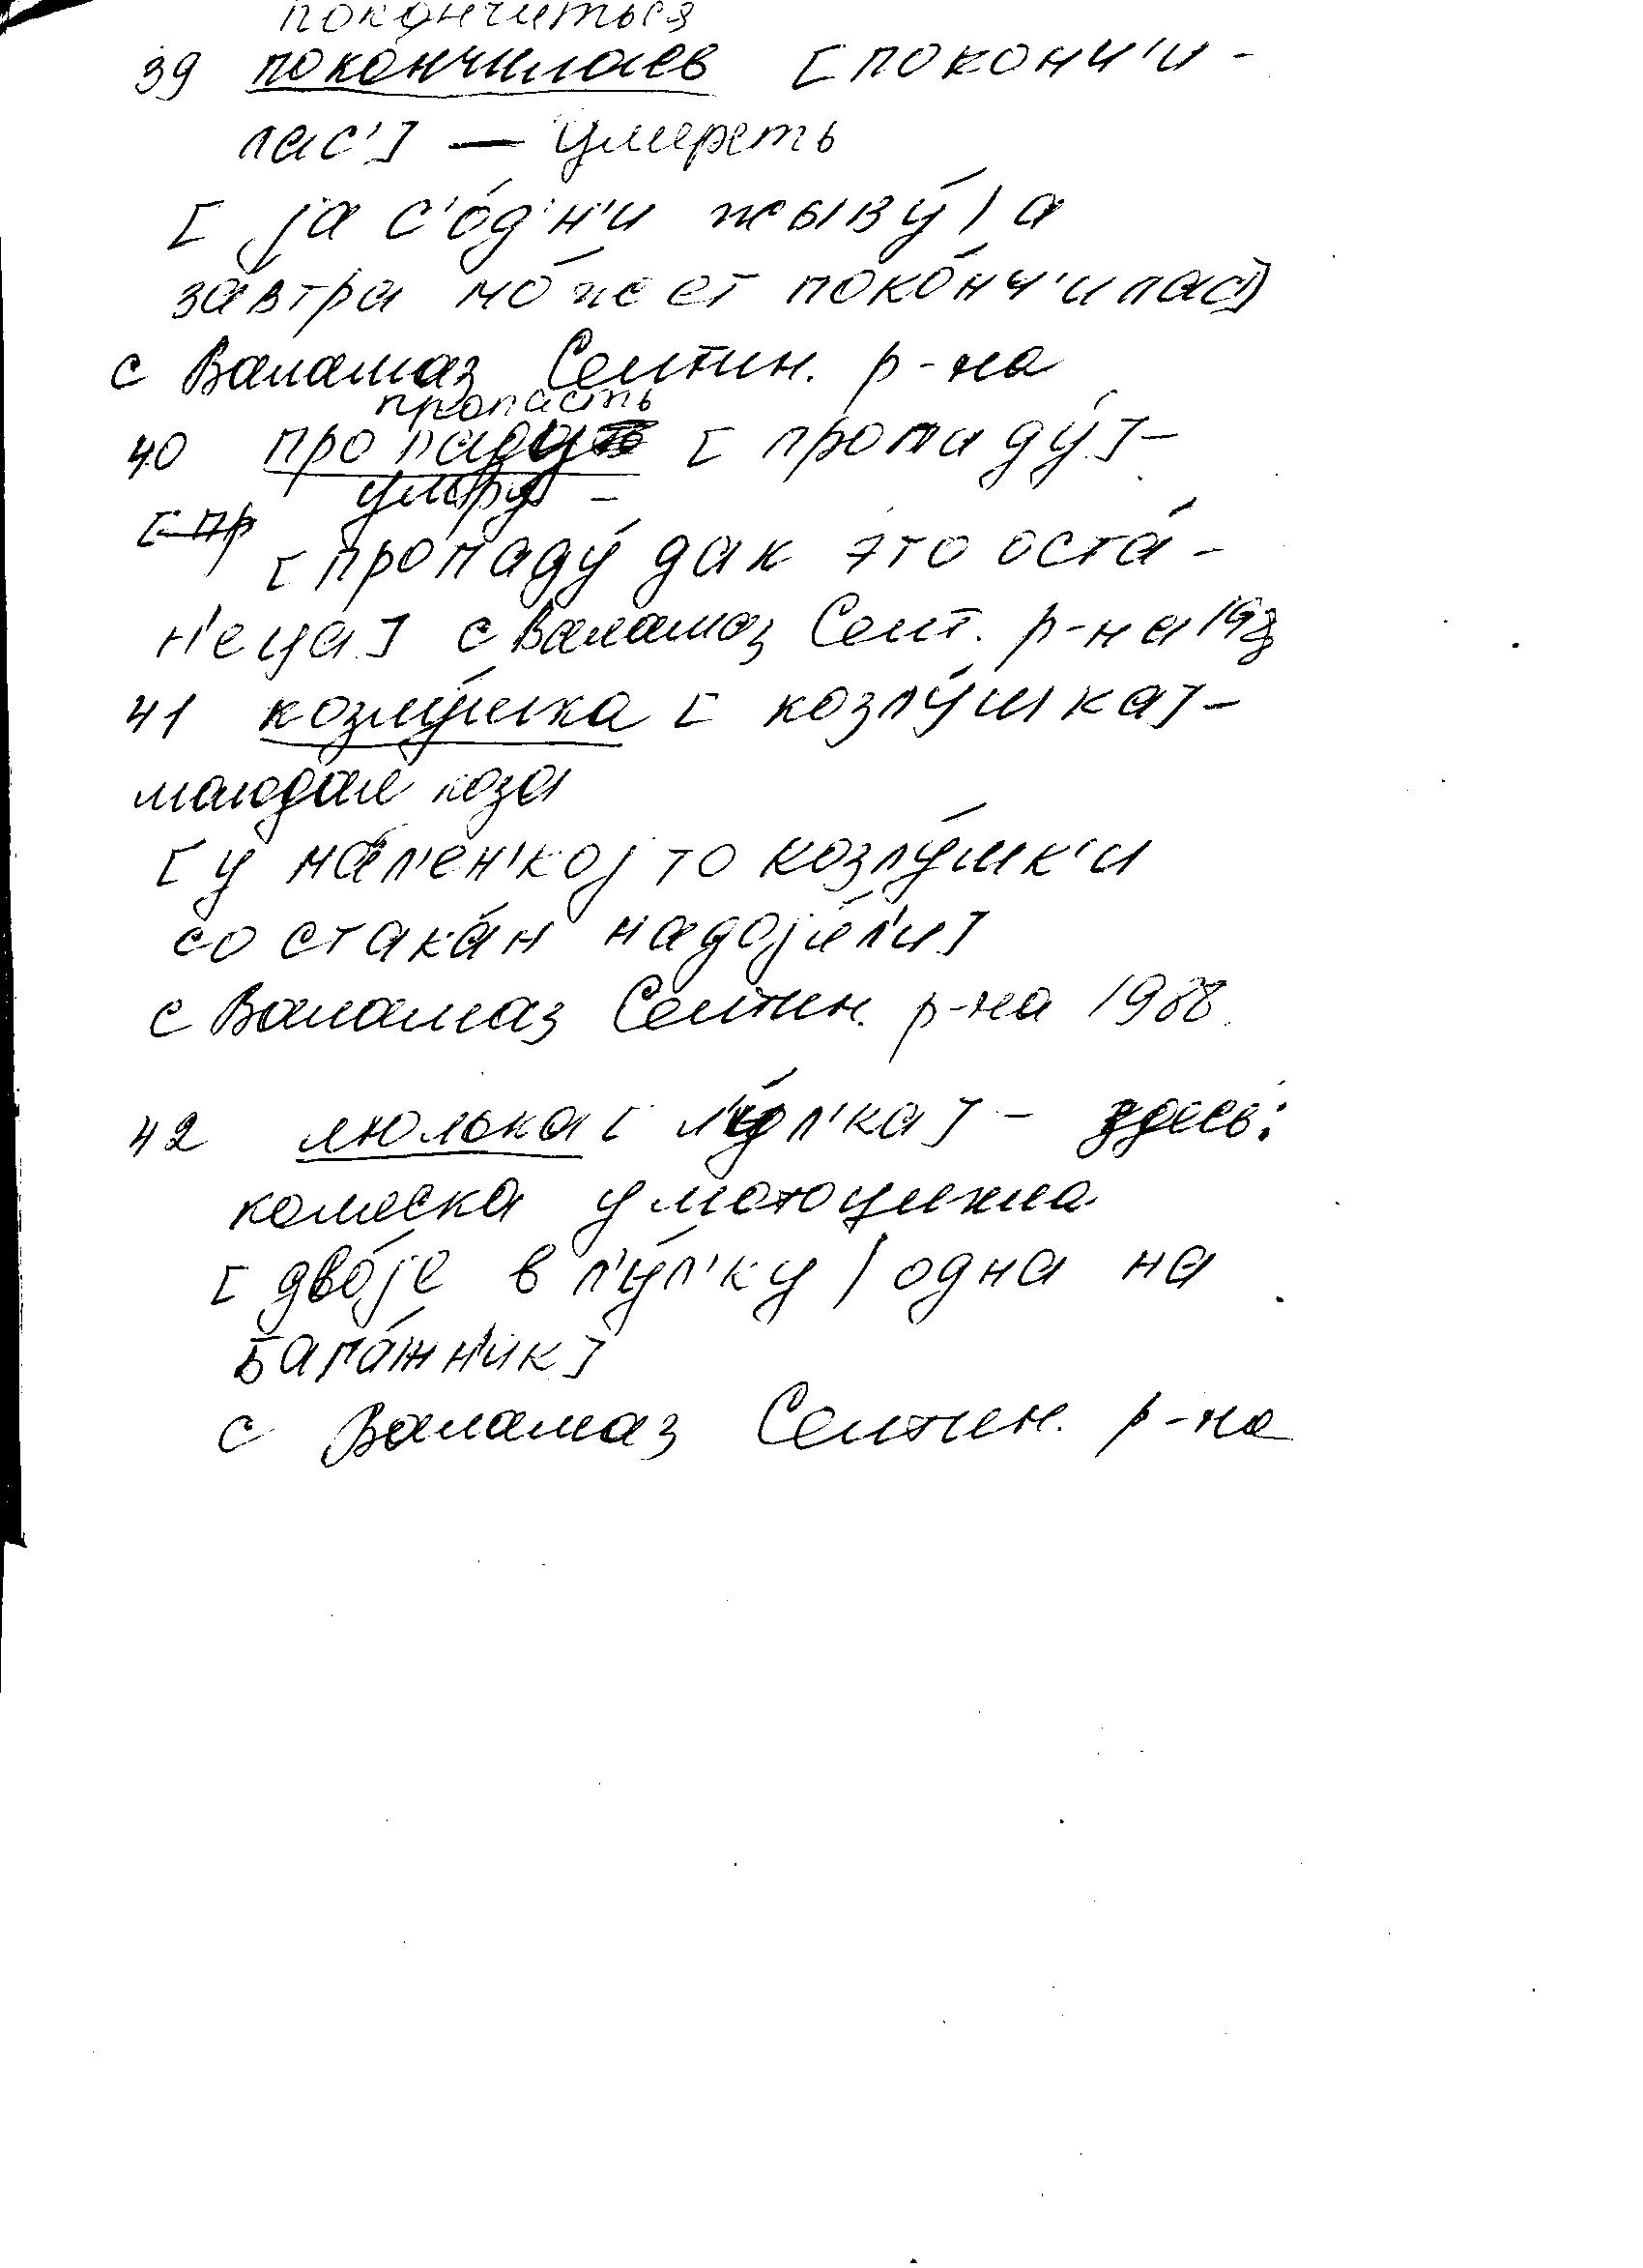 покончиться
39 покончилась [покончʼи-
ласʼ] — умереть
[ jа сʼо́дʼнʼи жыву́ / а
за́втра мо́жет поко́нчʼиласʼ]
с Валамаз Селтин. р-на
пропасть
40 пропаду [пропаду́] –
умру –
[пропаду́ дак это оста́-
нʼеца] с Валамаз Селт. р-на
41 козлу́шка [козлу́шка] –
молодая коза
[у ма́лʼенʼкоj то козлу́шкʼи
со стака́н надоjи́лʼи]
с Валамаз Селтин. р-на 1988
42 люлька [лʼу́лʼка] – здесь:
коляска у мотоцикла
[дво́jе в лʼу́лʼку / одна на
бага́жнʼик]
с Валамаз Селтин. р-на